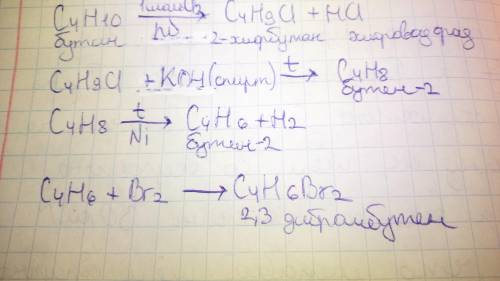 C4H10 → C4H9Cl + HCl
hν
бутан 2-хлорбутан хлороводород
C4H9Cl + KOH(спирт) t→ C4H8
бутен-2
C4H8 t→ C4H6 + H2
Ni бутен-2
C4H6 + Br2 → C4H6Br2
2,3 дибромбутен